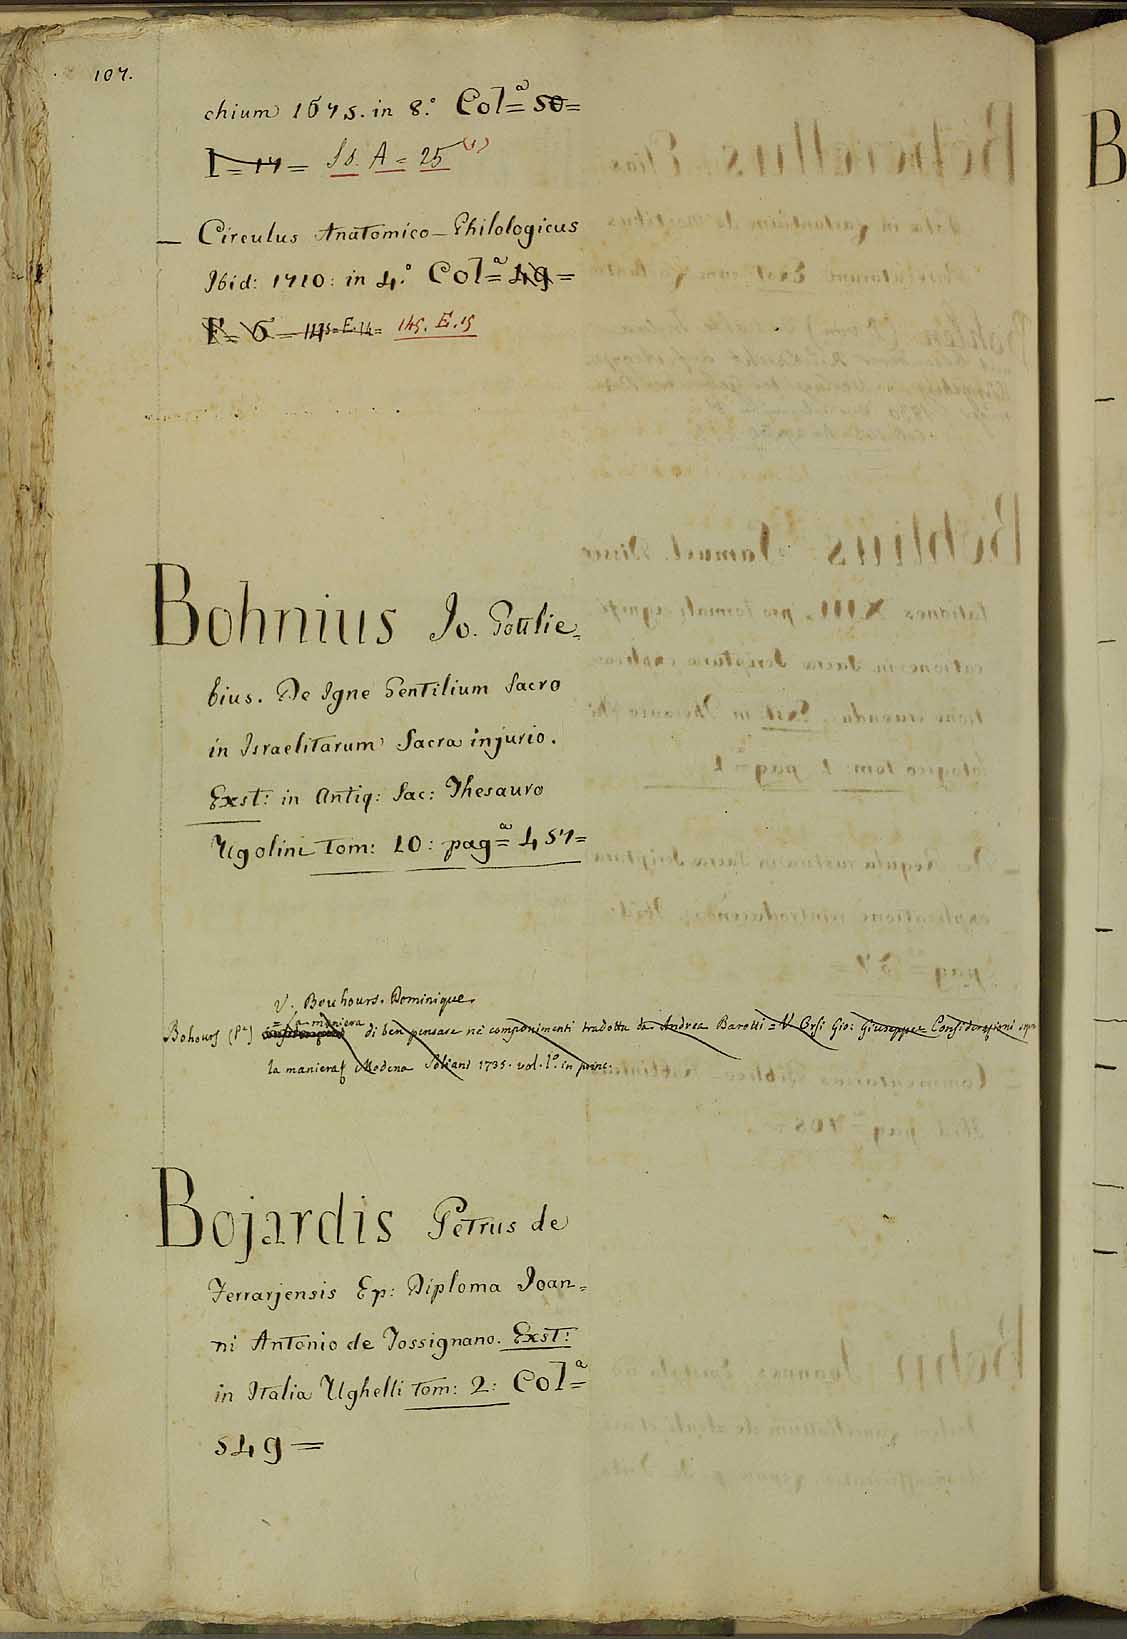 107.
chium 1675. in 8.° Col=ª 50=
I= 17= Sd. A= 25 (1)
— Circulus Anatomico-Philologicus
Ibid: 1710: in 4.° Col=ª 49=
F= 6= 145=E.14= 145. E. 15
Bohnius Jo. Gottlie=
bius. De Igne Gentilium Sacro
in Israelitarum Sacra injurio.
Exst: in Antiq: Sac: Thesauro
Ugolini Tom: 10: pag=ª 457=
V. Bouhours. Dominique.
= La maniera
Bohours (P.e) di ben pensare ne' componimenti tradotta da Andrea Barotti = V. Orsi Gio: Giuseppe = Considerazioni sopra
la maniera & Modena Soliani 1735. vol. 1.° in princ.
Bojardis Petrus de
Ferrarjensis Ep: Diploma Joan=
ni Antonio de Fossignano. Exst:
in Italia Ughelli Tom: 2: Col=ª
549=
B